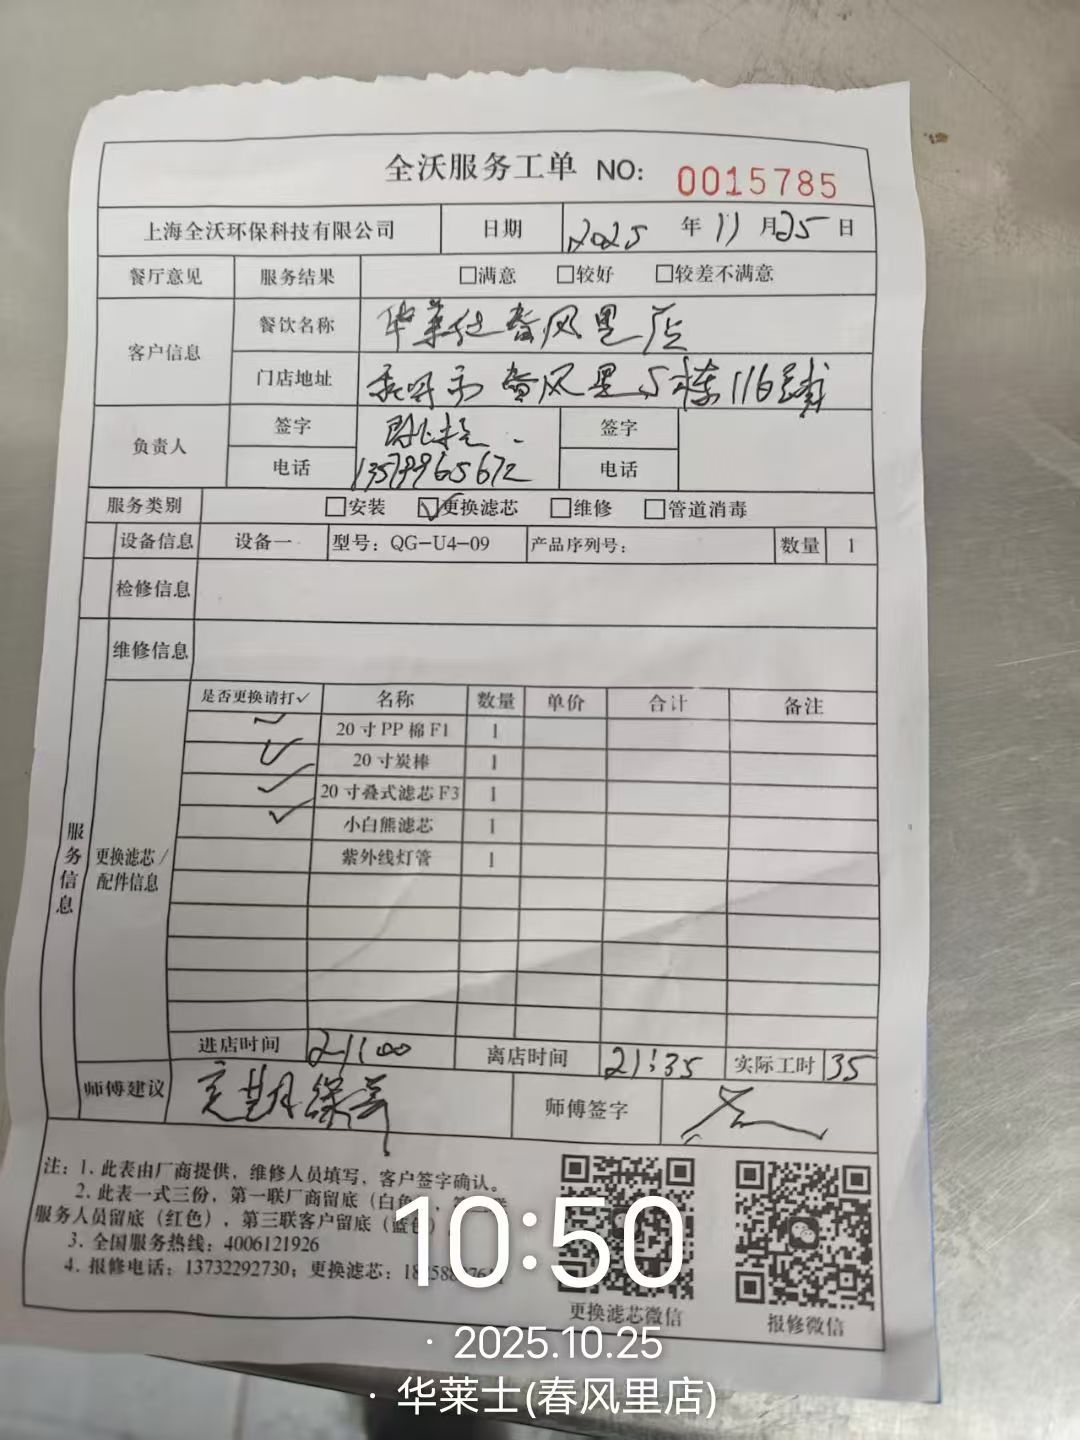 全沃服务工单 NO: 0015785
上海全沃环保科技有限公司 日期 2025 年 11 月 25 日
餐厅意见 服务结果 □满意 □较好 □较差不满意
客户信息 餐饮名称 华莱仕春风里店
门店地址 春风里5栋116号铺
负责人 签字 签字
电话 13579965672 电话
服务类别 □安装 ☑更换滤芯 □维修 □管道消毒
设备信息 设备一 型号：QG-U4-09 产品序列号： 数量 1
检修信息
维修信息
服务信息
更换滤芯/配件信息
是否更换请打✓ 名称 数量 单价 合计 备注
✓ 20寸PP棉F1 1
✓ 20寸炭棒 1
✓ 20寸叠式滤芯F3 1
✓ 小白熊滤芯 1
紫外线灯管 1
进店时间 21:00 离店时间 21:35 实际工时 35
师傅建议 定期保养 师傅签字
注：1. 此表由厂商提供，维修人员填写，客户签字确认。
2. 此表一式三份，第一联厂商留底（白色
服务人员留底（红色），第三联客户留底（蓝色）
3. 全国服务热线：4006121926
4. 报修电话：13732292730；更换滤芯：
更换滤芯微信 报修微信
10:50
· 2025.10.25
· 华莱士(春风里店)